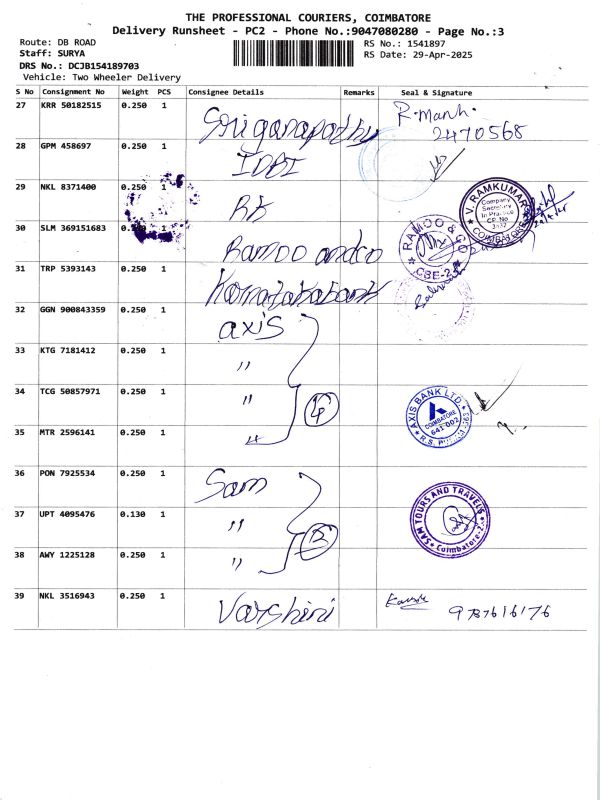 THE PROFESSIONAL COURIERS, COIMBATORE
Delivery Runsheet - PC2 - Phone No.:9047080280 - Page No.:3
Route: DB ROAD
RS No.: 1541897
Staff: SURYA
RS Date: 29-Apr-2025
DRS No.: DCJB154189703
Vehicle: Two Wheeler Delivery
S No Consignment No Weight PCS Consignee Details Remarks Seal & Signature
27 KRR 50182515 0.250 1 Sri ganapathy R. Manh.
2470568
28 GPM 458697 0.250 1 IDBI
29 NKL 8371400 0.250 1 RK
V. RAMKUMAR
Company
Secretary
In Practice
CP No
COIMBATORE
30 SLM 369151683 0.250 1 Ramoo and co
RAMOO & CO
CBE-2
31 TRP 5393143 0.250 1 Karnatakabank
32 GGN 900843359 0.250 1 axis
33 KTG 7181412 0.250 1 "
34 TCG 50857971 0.250 1 "
AXIS BANK LTD.
COIMBATORE
641 002
35 MTR 2596141 0.250 1 "
36 PON 7925534 0.250 1 Sam
37 UPT 4095476 0.130 1 "
SAM TOURS AND TRAVELS
Coimbatore-2
38 AWY 1225128 0.250 1 "
39 NKL 3516943 0.250 1 Varshini 9787616176